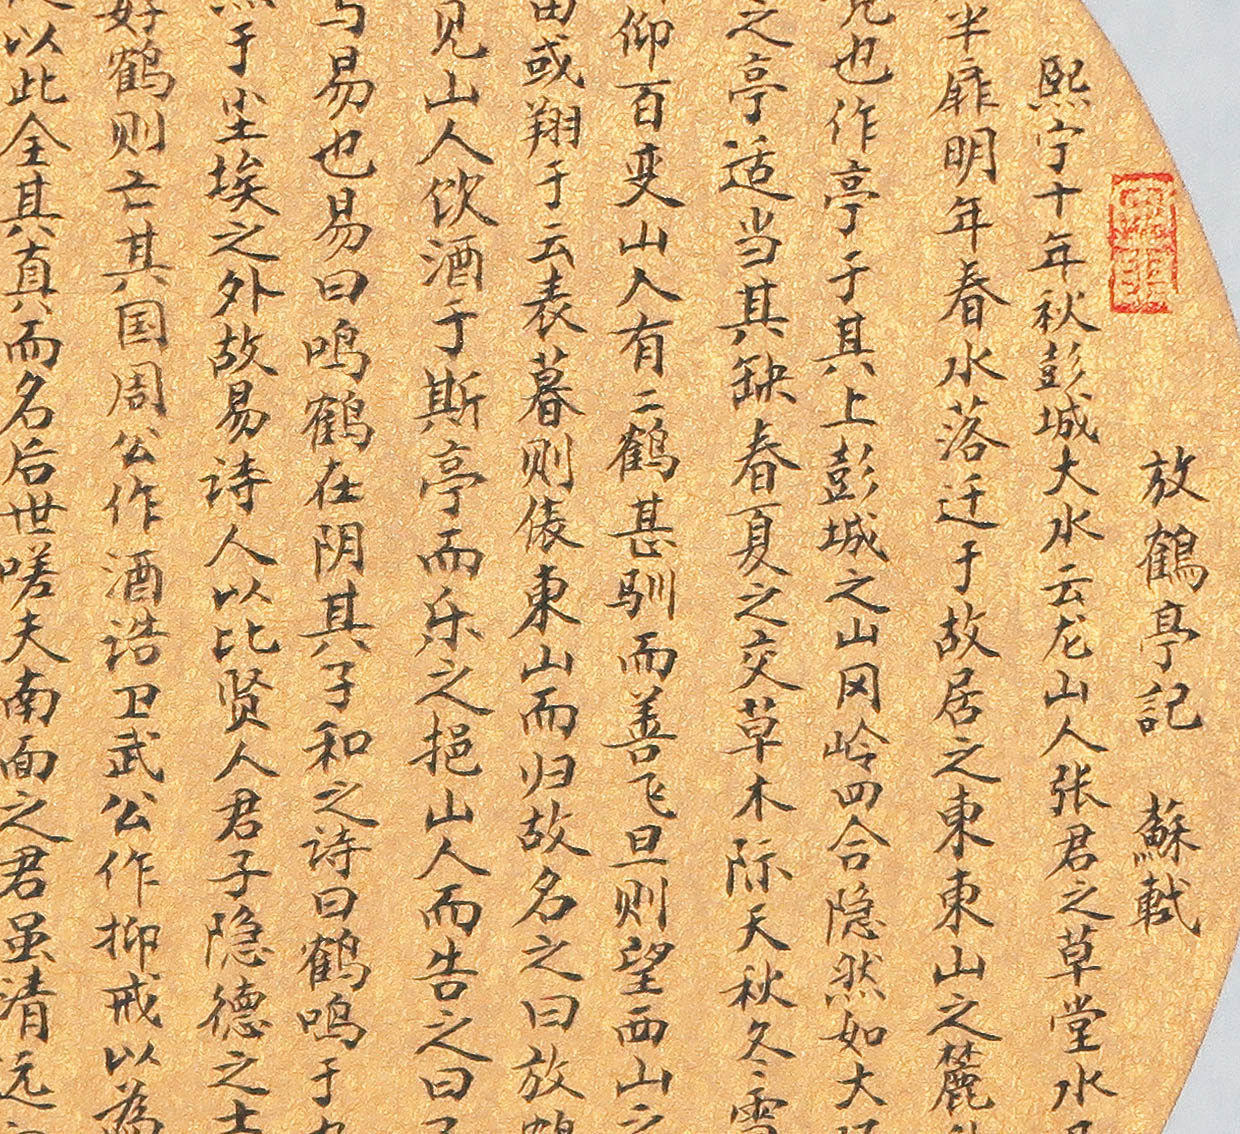 放鹤亭記 蘇軾
熙宁十年秋彭城大水云龙山人张君之草堂水
半扉明年春水落迁于故居之東東山之麓
也作亭于其上彭城之山冈岭四合隐然如大
之亭适当其缺春夏之交草木际天秋冬雪
仰百变山人有二鹤甚馴而善飞旦则望西山之
田或翔于云表暮则傃東山而归故名之曰放鹤
见山人饮酒于斯亭而乐之挹山人而告之曰
与易也易曰鸣鹤在阴其子和之诗曰鹤鸣于九
然于尘埃之外故易诗人以比贤人君子隐德之士
好鹤则亡其国周公作酒诰卫武公作抑戒以為
以此全其真而名后世嗟夫南面之君虽清远